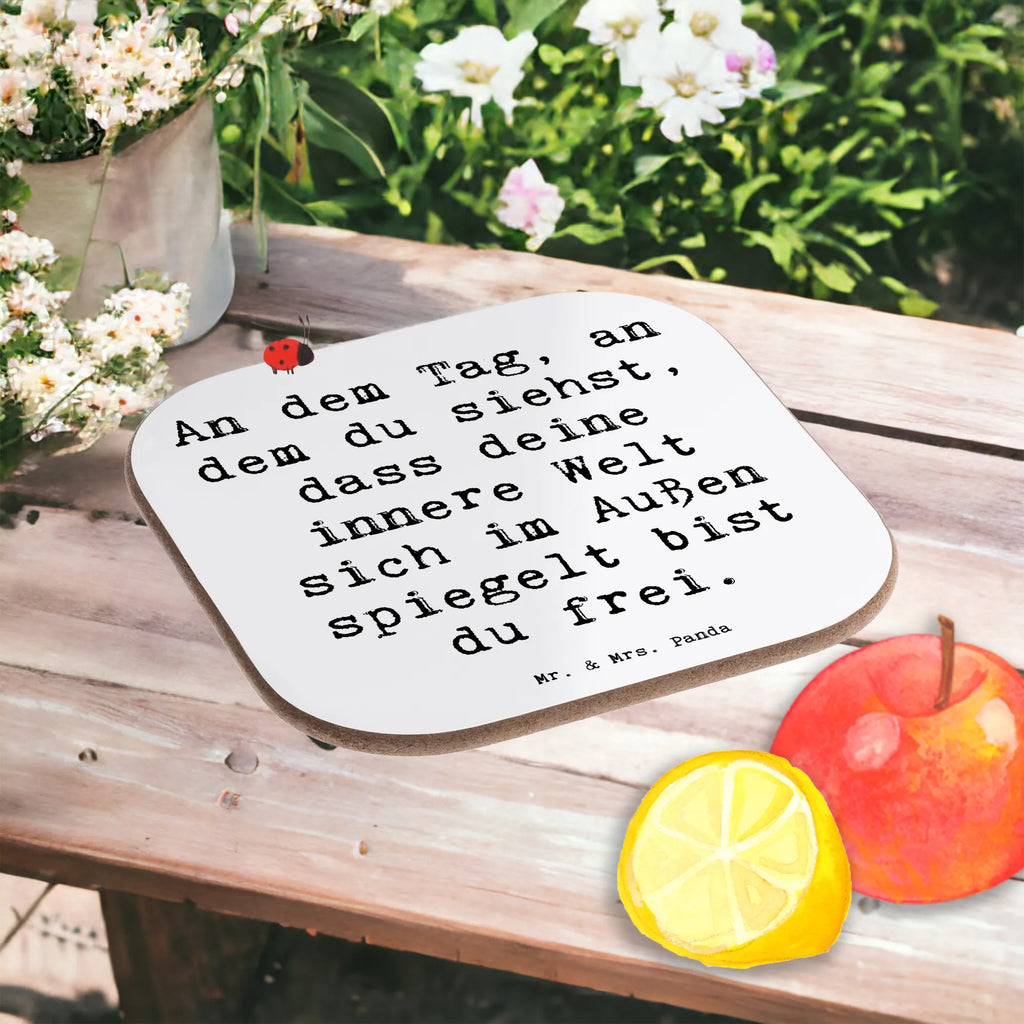 An dem Tag, an
dem du siehst,
dass deine
innere Welt
sich im Außen
spiegelt bist
du frei.
Mr. & Mrs. Panda